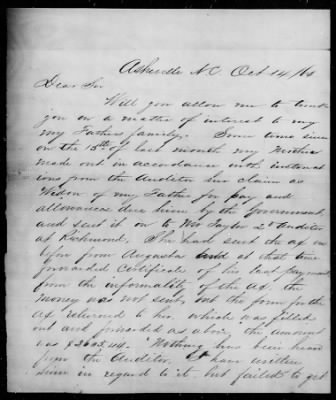 Asheville N.C. Oct 14/64
Dear Sir
Will you allow me to trouble
you on a matter of interest to my
my Fathers family. Some time since
on the 15th of last month my Mother
made out in accordance with instruc
tions from the Auditor her claim as
Widow of my Father for pay and
allowances due him by the Government
and sent it on to Wm Taylor 2d Auditor
at Richmond. She had sent the a/c on
before from Augusta and at that time
forwarded Certificate of his last payment
from the informality of the a/c, the
money was not sent, but the form for the
a/c returned to her, which was filled
out and forwarded as above, the amount
was $2605.44. Nothing has been heard
from the Auditor. I have written
him in regard to it, but failed to get